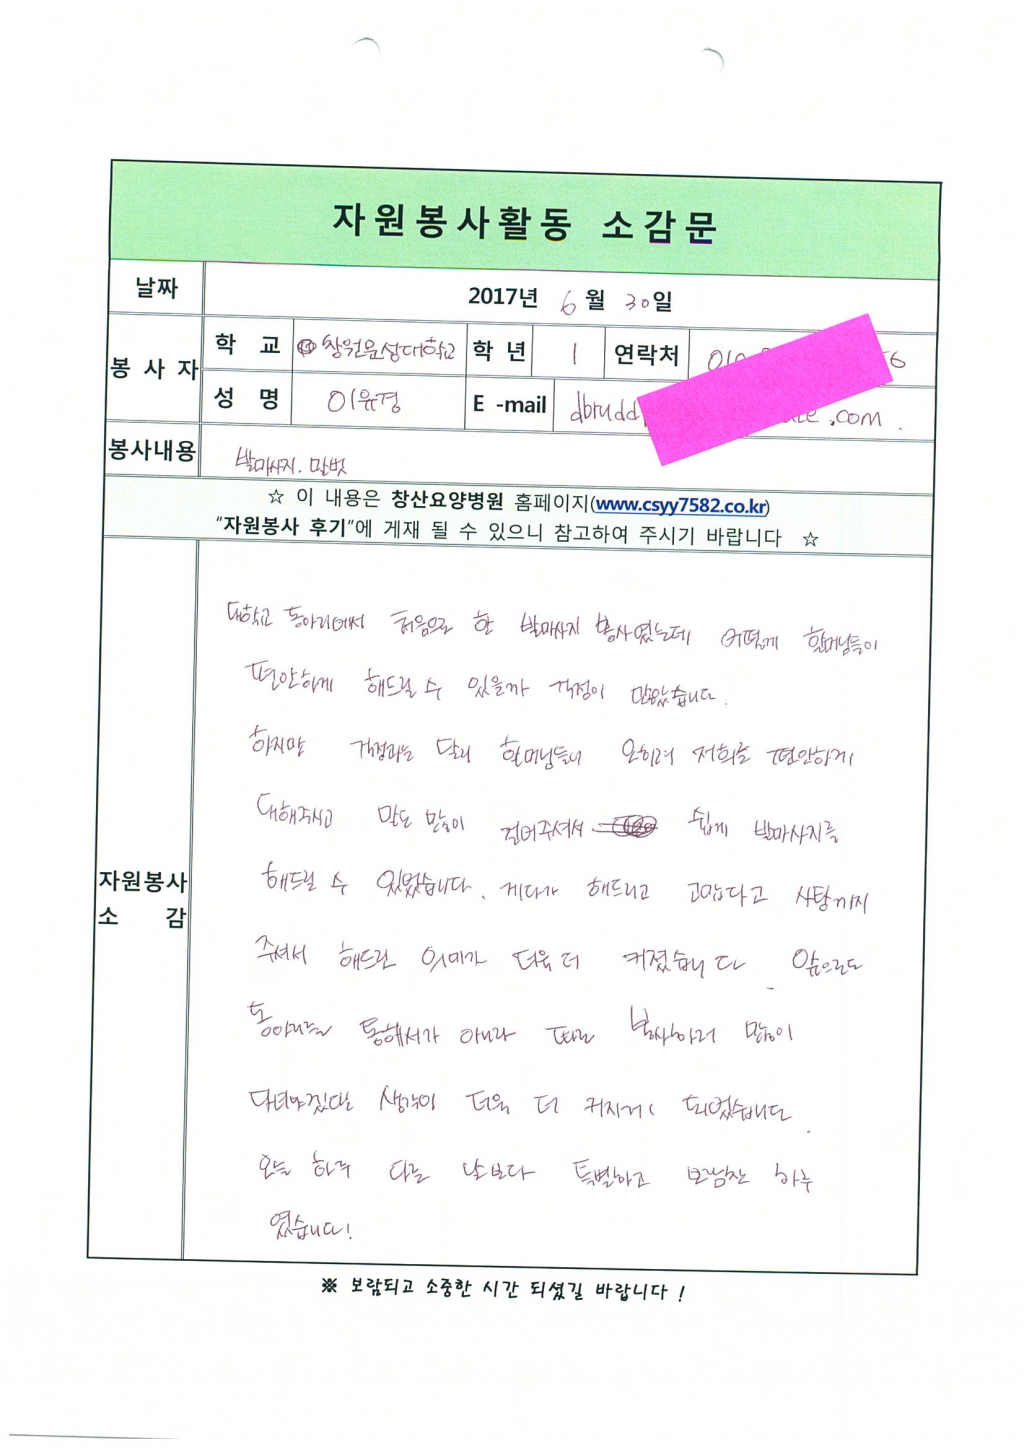 자원봉사활동 소감문
날짜 2017년 6월 30일
봉사자 학교 창원문성대학교 학년 1 연락처 010
성명 이유경 E-mail dbrudd .com
봉사내용 발마사지. 말벗
☆ 이 내용은 창산요양병원 홈페이지(www.csyy7582.co.kr)
"자원봉사 후기"에 게재 될 수 있으니 참고하여 주시기 바랍니다 ☆
자원봉사
소 감
대학교 동아리에서 처음으로 한 발마사지 봉사였는데 어떻게 할머님들이
편안하게 해드릴 수 있을까 걱정이 많았습니다.
하지만 걱정과는 달리 할머님들이 오히려 저희를 편안하게
대해주시고 말도 많이 걸어주셔서 쉽게 발마사지를
해드릴 수 있었습니다. 게다가 해드리고 고맙다고 사탕까지
주셔서 해드린 의미가 더욱 더 커졌습니다. 앞으로도
동아리를 통해서가 아니라 따로 봉사하러 많이
다녀야겠다는 생각이 더욱 더 커지게 되었습니다.
오늘 하루 다른 날보다 특별하고 보람찬 하루
였습니다!
※ 보람되고 소중한 시간 되셨길 바랍니다 !